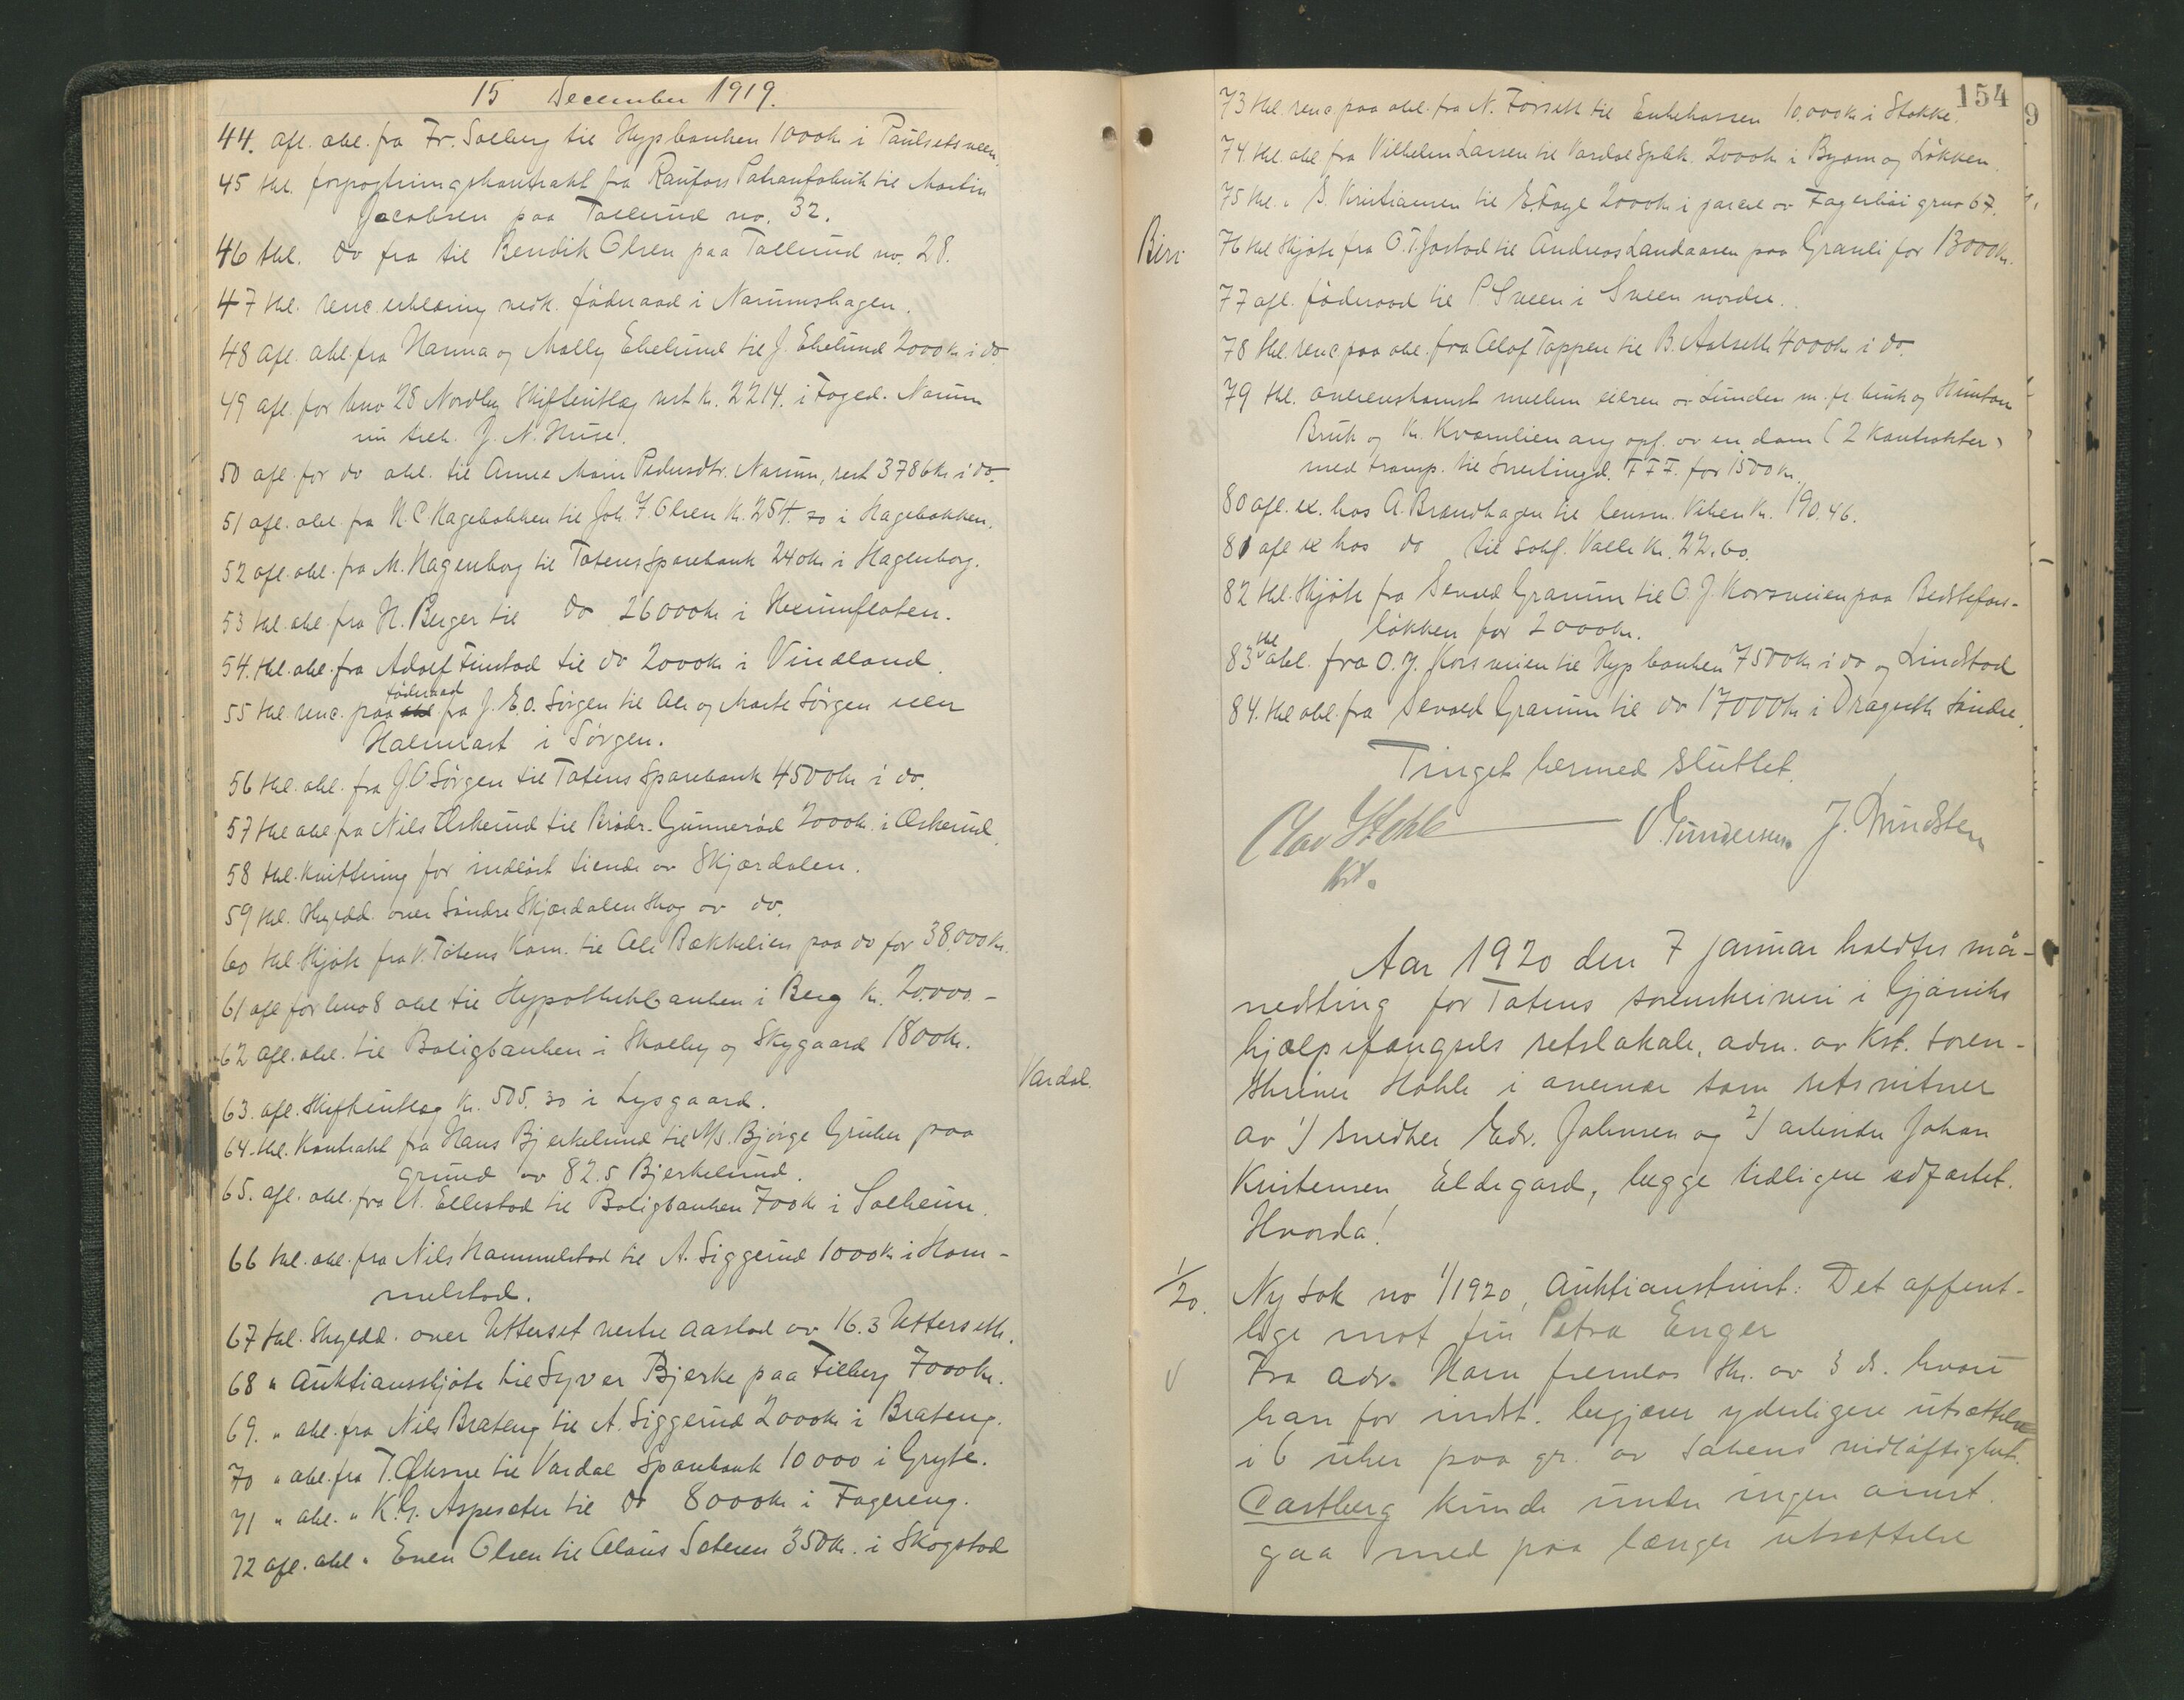 15 December 1919.
44. afl. obl. fra Fr. Solberg til Hypbanken 1000 kr i Paulsetsveen.
45 thl. forpagtningskontrakt fra Raufoss Patronfabrik til Martin
Jacobsen paa Tollerud no. 32.
46 thl. do fra til Bendik Olsen paa Tollerud no. 28.
47 thl. renc. erklæring vedk. føderaad i Narumshagen.
48 afl. obl. fra Hanna og Molly Ekelund til J. Ekelund 2000 kr i do
49 afl. for lno 28 Nordby Skifteutlæg rest kr. 2214. i Foged. Narum
nu tilh. J. N. Huse.
50 afl. for do obl. til Anne Marie Pedersdtr. Narum, rest 3786 kr i do.
51 afl. obl. fra N. C. Hagebakken til Joh. F. Olsen kr. 254.70 i Hagebakken.
52 afl. obl. fra M. Hagenborg til Totens Sparebank 240 kr i Hagenborg.
53 thl. obl. fra N. Berger til do 26000 kr i Hexumfloten.
54. thl. obl. fra Adolf Finstad til do 2000 kr i Vindland.
55 thl. renc. paa føderaad fra J. E. O. Sørgen til Ole og Marte Sørgen uten
Halmrast i Sørgen.
56 thl. obl. fra J. O Sørgen til Totens Sparebank 4500 kr i do.
57 thl obl fra Nils Askerud til Brødr. Gunnerød 2000 kr. i Askerud.
58 thl. kvittering for indløst tiende av Skjærdalen.
59 thl. Skyldd. over Søndre Skjærdalen Skog av do.
60 thl. Skjøte fra V. Totens Kom. til Ole Bækkelien paa do for 38,000 kr.
61 afl for lno 8 obl til Hypothekbanken i Berg kr. 20.000.-
62 afl. obl. til Boligbanken i Skolby og Skygaard 1800 kr.
Vardal.
63. afl. Skifteutlæg kr. 505.30 i Lysgaard.
64. thl. Kontrakt fra Hans Bjerkelund til A/S. Bjørge Gruber paa
grund av 82.5 Bjerkelund.
65. afl. obl. fra A. Ellestad til Boligbanken 700 kr i Solheim.
66 thl. obl. fra Nils Hammelstad til A. Siggerud 1000 kr i Ham-
melstad.
67 thl. Skyldd. over Utterset vestre Aastad av 16.3 Utterseth.
68 " Auktionsskjøte til Syver Bjerke paa Filberg 7000 kr.
69. " obl. fra Nils Brateng til A. Siggerud 2000 kr i Brateng.
70 " obl. fra T. Øksne til Vardal Sparebank 10000 i Gryte.
71 " obl. " K. G. Aspeseter til do 8000 kr i Fagereng.
72 afl. obl " Even Olsen til Olaus Sateren 350 kr. i Skogstad
154
9
73 thl. renc paa obl. fra N. Forseth til Enkekassen 10.000 kr i Stokke.
74. thl. obl. fra Vilhelm Larsen til Vardal Spbk. 2000 kr i Byom og Løkken
75 thl. " S. Kristiansen til E. Foyl 2000 kr i parcel av Fagerlii grno 67.
Biri
76 thl Skjøte fra O. T. Jøstad til Andreas Landaasen paa Granli for 13000 kr.
77 afl. føderaad til P. Sveen i Sveen nordre.
78 thl. renc paa obl. fra Olof Tøppen til B. Aalseth 4000 kr i do.
79 thl. overenskomst mellem eieren av Lunden m. fl. bruk og Hunton
Bruk og Kr. Kvamlien ang opf. av en dam (2 kontrakter)
med transp. til Snertingd. F F F. for 1500 kr.
80 afl. ex. hos A. Brændhagen til lensm. Viken kr. 190.46.
81 afl ex hos do til sakf. Valle kr. 22.60.
82 thl. Skjøte fra Sevald Granum til O. J. Korsveien paa Bedstefars-
løkken for 2000 kr.
83 thl obl. fra O. J. Korsveien til Hypbanken 7500 kr i do og Lindstad
84. thl obl. fra Sevald Granum til do 17000 kr i Dragseth søndre.
Tinget hermed sluttet.
Olav Hohle V. Gundersen. J. Lundsten
kst.
Aar 1920 den 7 januar holdtes må-
nedsting for Totens sorenskriveri i Gjøviks
hjælpefængsels retslokale, adm. av kst. soren-
skriver Hohle i overvær som retsvitner
av 1) snedker Edv. Johnsen og 2) arbeider Johan
Kristensen Eldegard, begge tidligere edfæstet.
Hvorda!
1/20.
Ny sak no 1/1920, Auktionstvist: Det offent-
lige mot fru Petra Enger
Fra adv. Horn fremlas skr. av 3 ds. hvori
han for indst. begjærer yderligere utsættelse
i 6 uker paa gr. av sakens vidløftighet.
Castberg kunde under ingen omst.
gaa med paa længer utsættelse